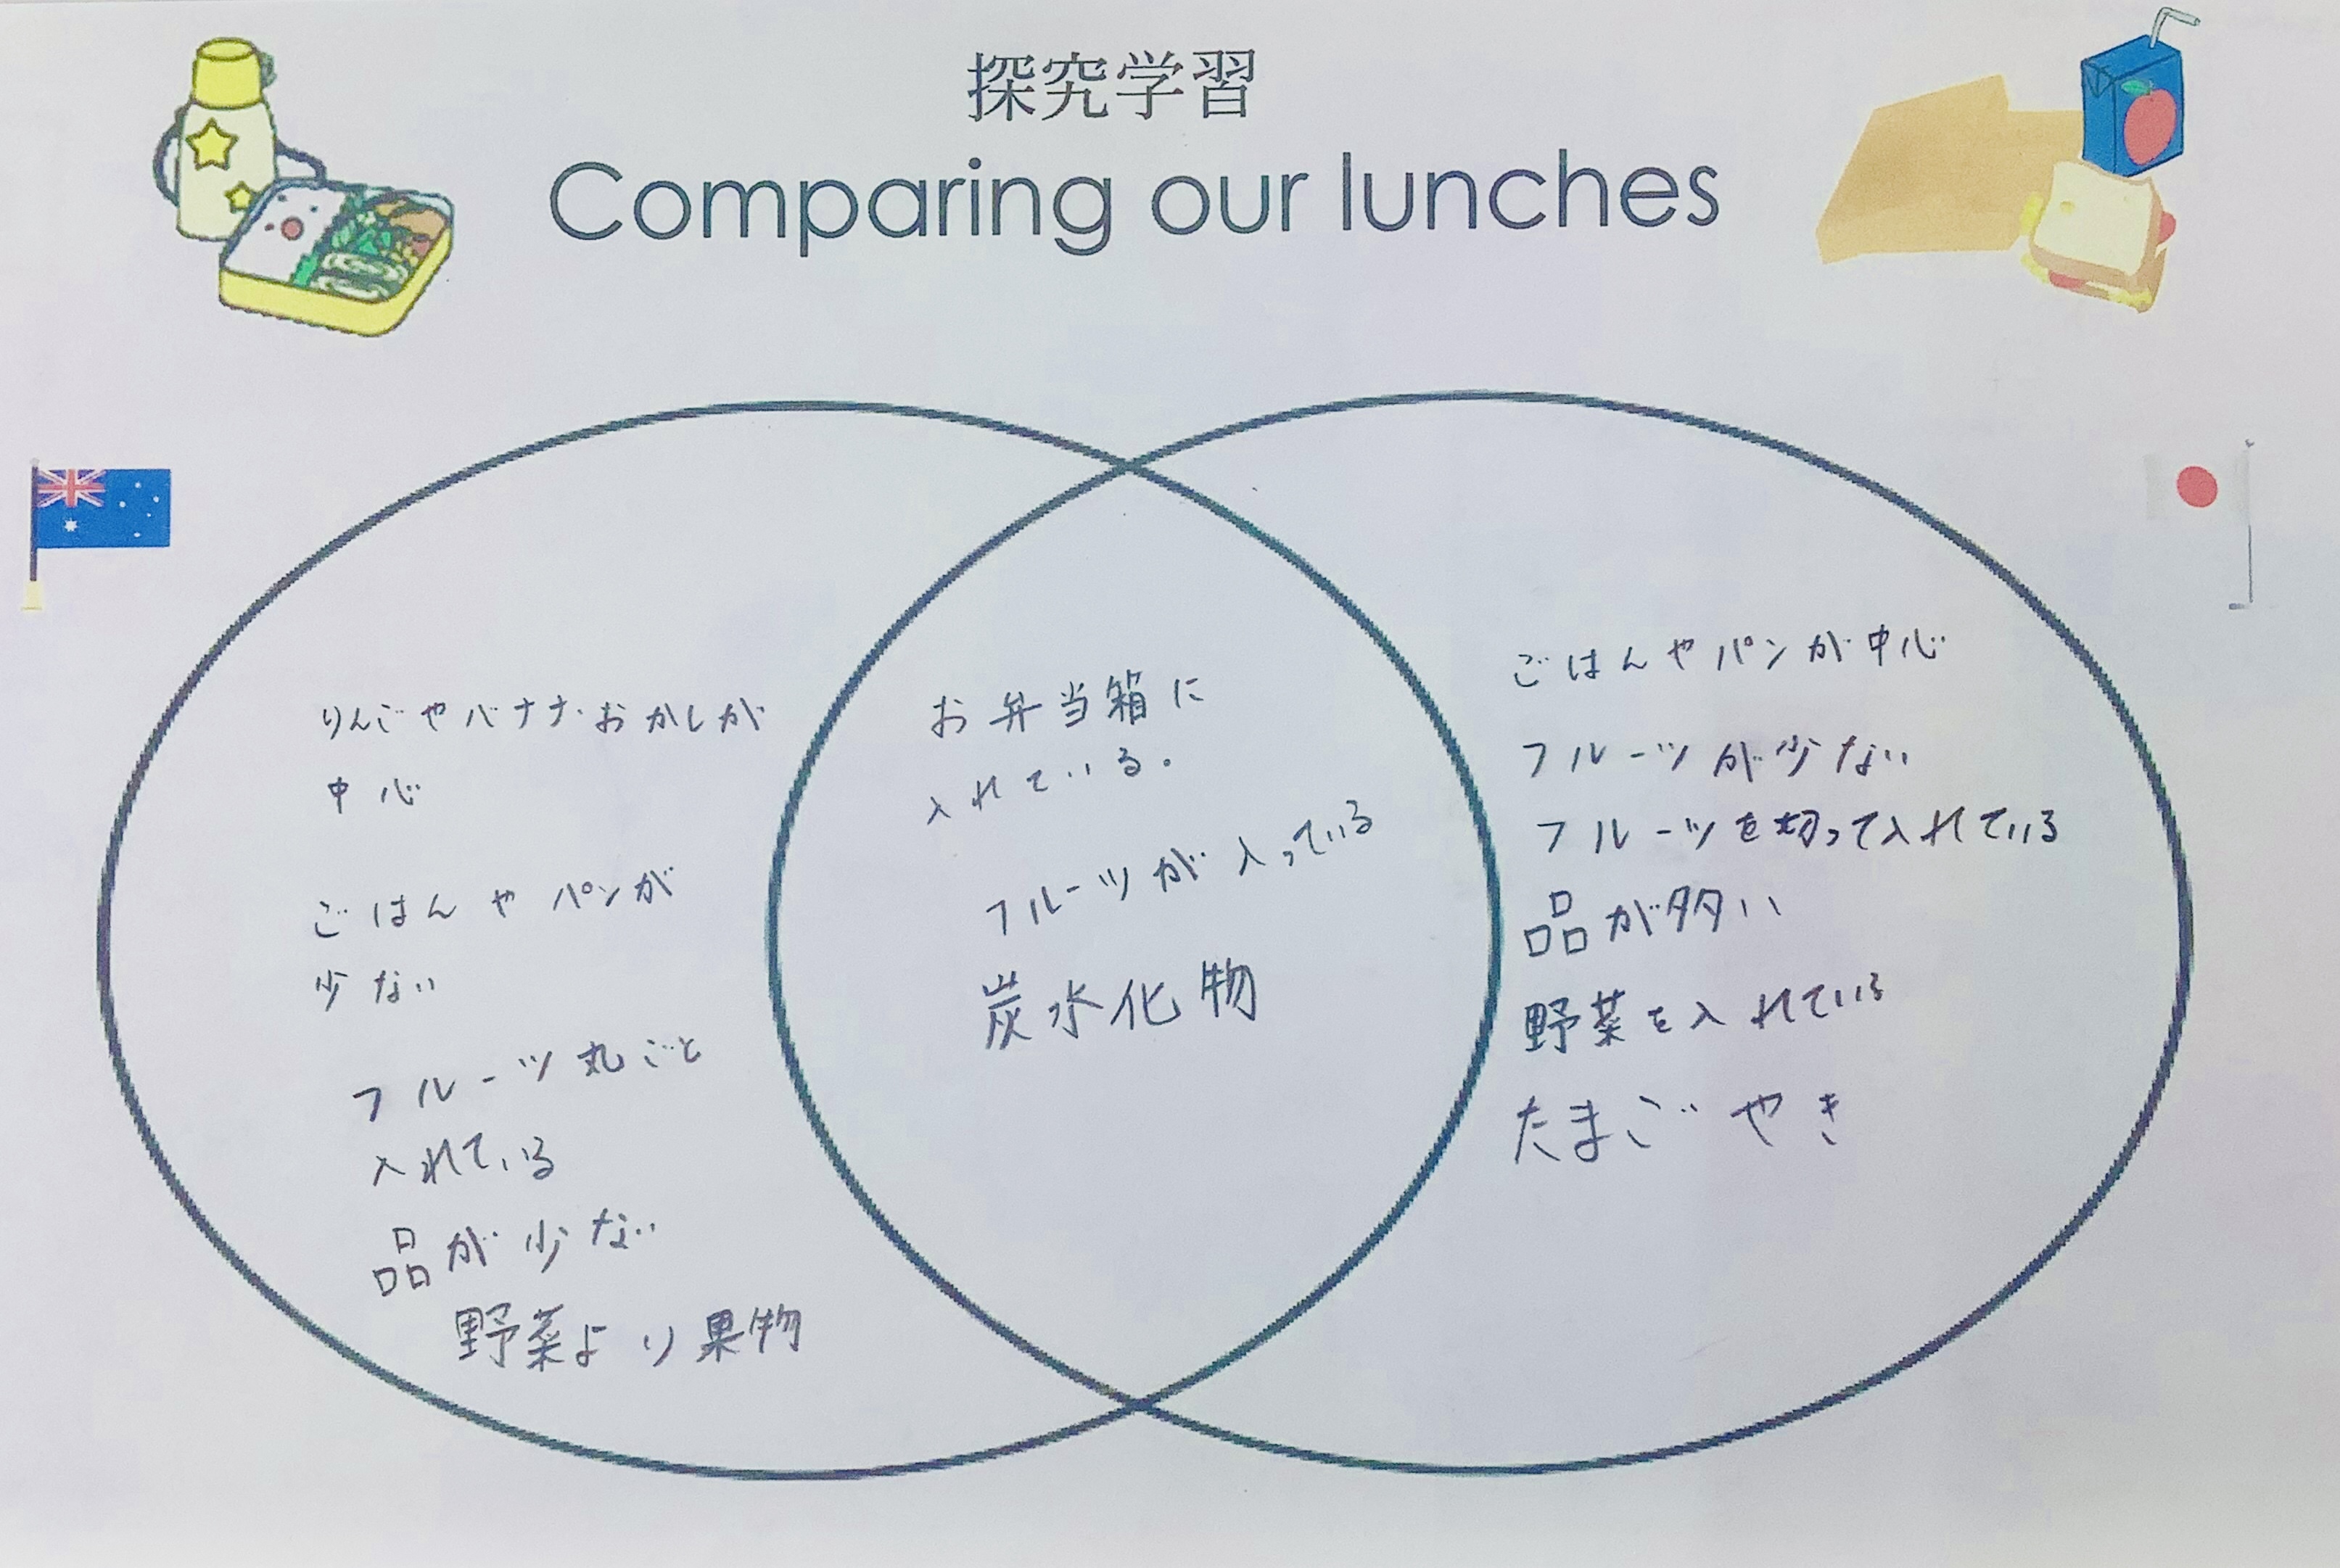 探究学習
Comparing our lunches
りんごやバナナ・おかしが
中心
ごはんやパンが
少ない
フルーツ丸ごと
入れている
品が少ない
野菜より果物
お弁当箱に
入れている。
フルーツが入っている
炭水化物
ごはんやパンが中心
フルーツが少ない
フルーツを切って入れている
品が多い
野菜を入れている
たまごやき